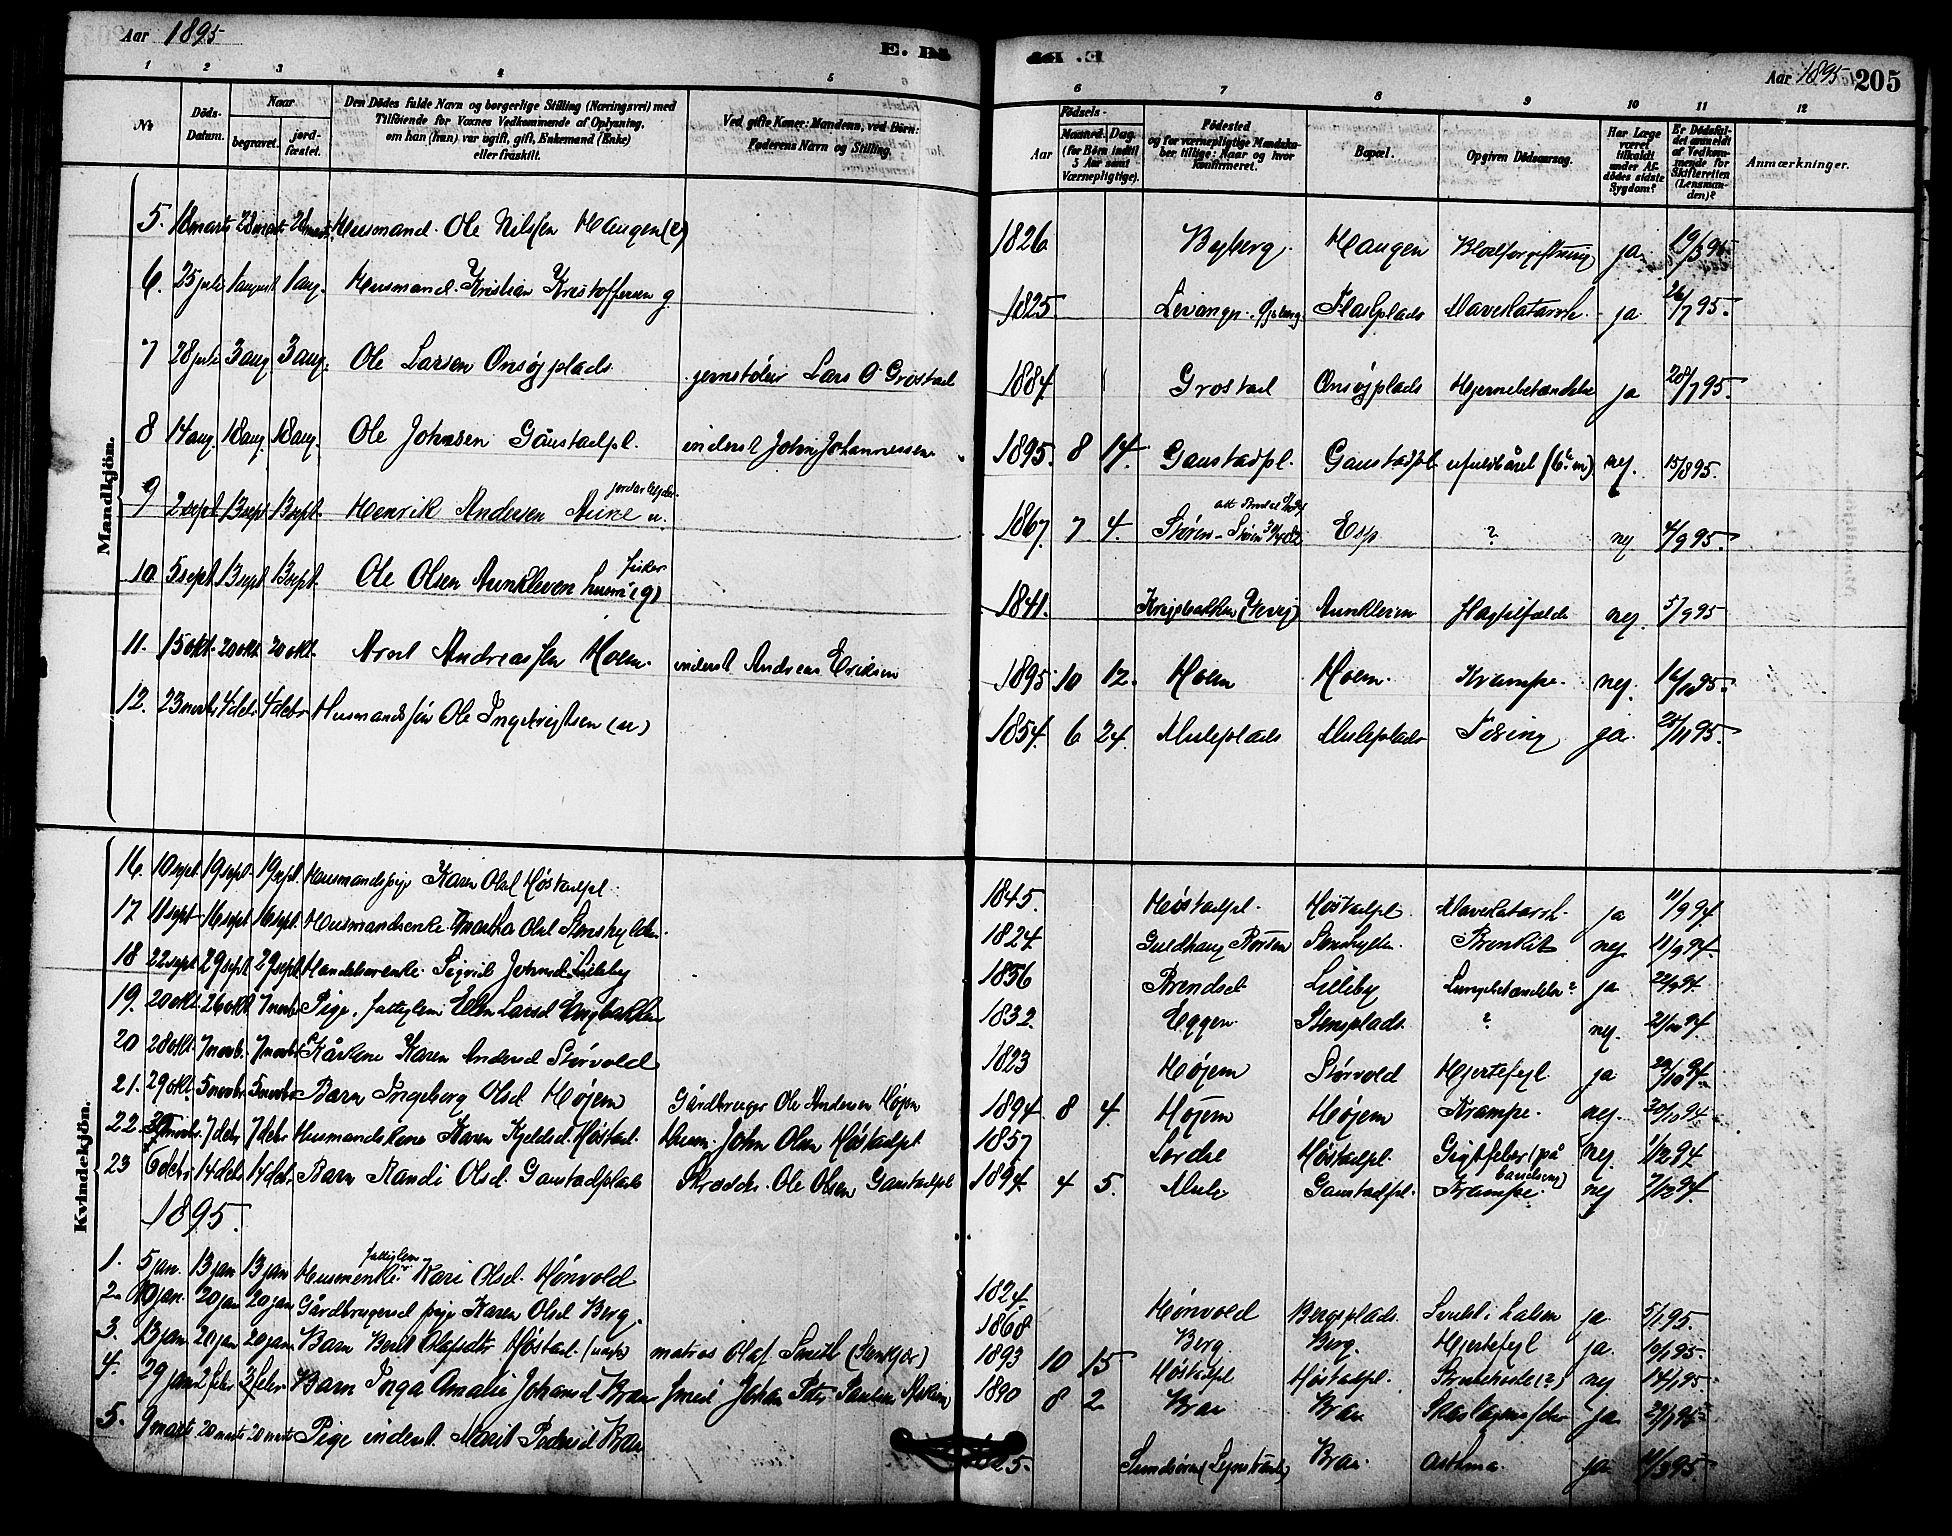 Aar 1895
E. D
E. D
Aar 1895 205
1 2 3 4 5 6 7 8 9 10 11 12
No
Døds-Datum.
Naar
begravet.
jord-fæstet.
Den Dødes fulde Navn og borgerlige Stilling (Næringsvei) med
Tilføiende for Voxnes Vedkommende af Oplysning,
om han (hun) var ugift, gift, Enkemand (Enke)
eller fraskilt.
Ved gifte Koner: Mandens, ved Børn:
Faderens Navn og Stilling.
Fødsels-
Aar
Maaned Dag
(for Børn indtil 5 Aar samt Værnepligtige).
Fødested
og for værnepligtige Mandskaber tillige: Naar og hvor konfirmeret.
Bopæl.
Opgiven Dødsaarsag.
Har Læge været tilkaldt under Afdødes sidste Sygdom?
Er Dødsfaldet anmeldt af Vedkommende for Skifteretten (Lensmanden)?
Anmærkninger.
Mandkjön.
5. 18 marts 28 marts 28 marts Husmand Ole Nilssen Haugen (e) 1826 Byberg Haugen Blodforgiftning ja 19/3 95
6. 25 juli 1 august 1 aug. Husmand Kristian Kristoffersen g 1825 Levanger Plads Mavekatarrh ja 26/7 95.
7 28 juli 3 aug 3 aug. Ole Larsen Onsøjplads Lars O Grostad 1884 Grostad Onsøjplads Hjernebetændelse ja 28/7 95.
8 14 aug. 18 aug. 18 aug. Ole Johnsen Gaustadpl. inderst John Johannessen 1895. 8 14. Gaustadpl. Gaustadpl. ufuldbåret nej. 15/8 95.
9 2 sept 13 sept 13 sept. Henrik Andersen Aune u. jordarbejder 1867. 7 4. Støren Esp ? nej 4/9 95.
10 5 sept. 13 sept. 13 sept. Ole Olsen Aunkleven husm. (g) fisker 1841. Aunkleven nej. 5/9 95
11. 15 okt. 20 okt. 20 okt. Arnt Andreassen Moen. inderst Andreas Eriksen 1895 10 12. Moen Moen. Krampe. nej. 16/10 95.
12. 23 novbr 4 debr 4 debr Husmandssøn Ole Ingebrigtsen (u) 1854. 6 24. Muleplads Muleplads Tæring ja. 25/11 95.
Kvindekjön.
16. 10 sept. 19 sept. 19 sept. Husmandspige Karen Olsd. Høstadpl. 1845. Høstadpl. Høstadpl. Mavekatarrh. ja 11/9 94.
17 11 sept 16 sept 16 sept. Husmandsenke Martha Olsd. 1824. Brenkit nej 11/9 94.
18 22 sept 29 sept 29 sept. Sigrid Johnsd. Lilleby 1856 Brendsel Lilleby Lungebetændelse? ja 22/9 94.
19. 20 okt. 26 okt. 7 novbr Pige, fattiglem Ellen Larsd. Engbakken 1832. Eggen Stensplads. ? nej. 21/10 94.
20 28 okt. 7 novb. 7 novbr Karen Andersd. Størvold 1823 Højem Størvold Hjertefejl ja 29/10 94.
21. 29 okt. 5 novbr 5 novbr Barn Ingeborg Olsd. Højem Gårdbruger Ole Andersen Højem 1894 8 4. Højem Højem Krampe. nej. 30/10 94.
22. 30 novbr. 7 debr 7 debr Husmandskone Karen Kjeldsd. Høstad. Husm. John Olsen Høstadpl. 1857 Høstadpl. Gigtfeber (på barselseng) nej. 1/12 94.
23 6 debr 14 debr 14 debr Barn Randi Olsd. Gaustadplads Skrædder Ole Olsen Gaustadpl. 1894 4 5. Mule Gaustadpl. Krampe. nej 7/12 94.
1895.
1. 5 jan. 13 jan 13 jan Husmenke Kari Olsd. Hønvold fattiglem 1824. Hønvold Bergsplads. Svulst i halsen ja 5/1 95.
2. 10 jan. 20 jan 20 jan Gårdbrugersd. pige Karen Olsd. Berg. 1868 Berg. Berg. Hjertefejl ja. 10/1 95.
3. 13 jan 20 jan 20 jan Barn Berit Olafsdtr Høstad matros Olaf Smith 1893 10 15 Høstadpl Høstadpl. Strubehoste (?) nej 14/1 95.
4. 29 jan 2 febr 3 febr Barn Inga Amalie Johansd. Braa Smed Johan Peter Paulsen 1890 8 2 Braa Braa Skarlagensfeber ja
5. 9 marts 20 marts 20 marts Pige inderst Marit Pedersd. Braa Braa Asthma ja 11/3 95.